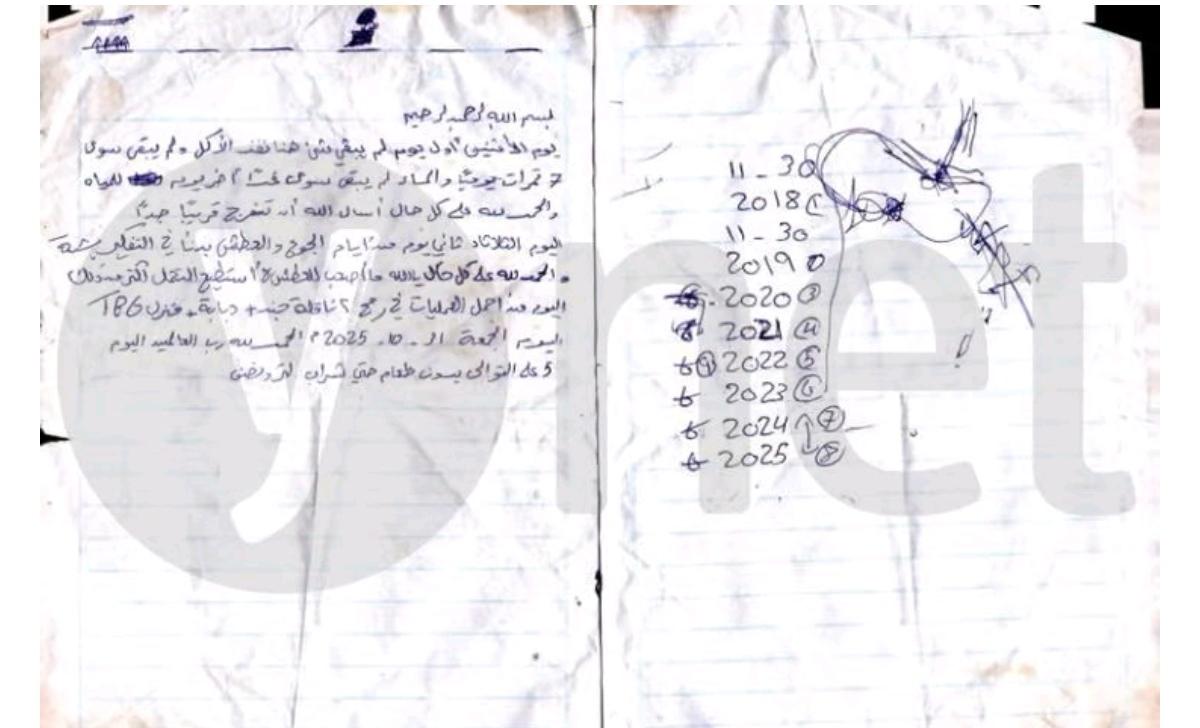 بسم الله الرحمن الرحيم
يوم الأثنين أول يوم لم يبقى شئ هنا نفذ الأكل ولم يبقى سوى
7 تمرات يوميًا والماء لم يبقى سوى آخر للمياه
والحمد لله على كل حال أسال الله أن تفرج قريبًا جدًا
اليوم الثلاثاء ثاني يوم من أيام الجوع والعطش بدنا في التفكير
والحمد لله على كل حال يالله ما أصعب العطش لا أستطيع التحمل أكثر من ذلك
اليوم من اجمل العمليات في رفح ٢ ناقلة جند + دبابة + TBG
اليوم الجمعة 2025 م الحمد لله رب العالمين اليوم
5 على التوالى بدون طعام حتي شراب
11 - 30
2018
11 - 30
2019
2020 ③
2021 ④
2022 ⑤
2023 ⑥
2024 ⑦
2025 ⑧
ynet